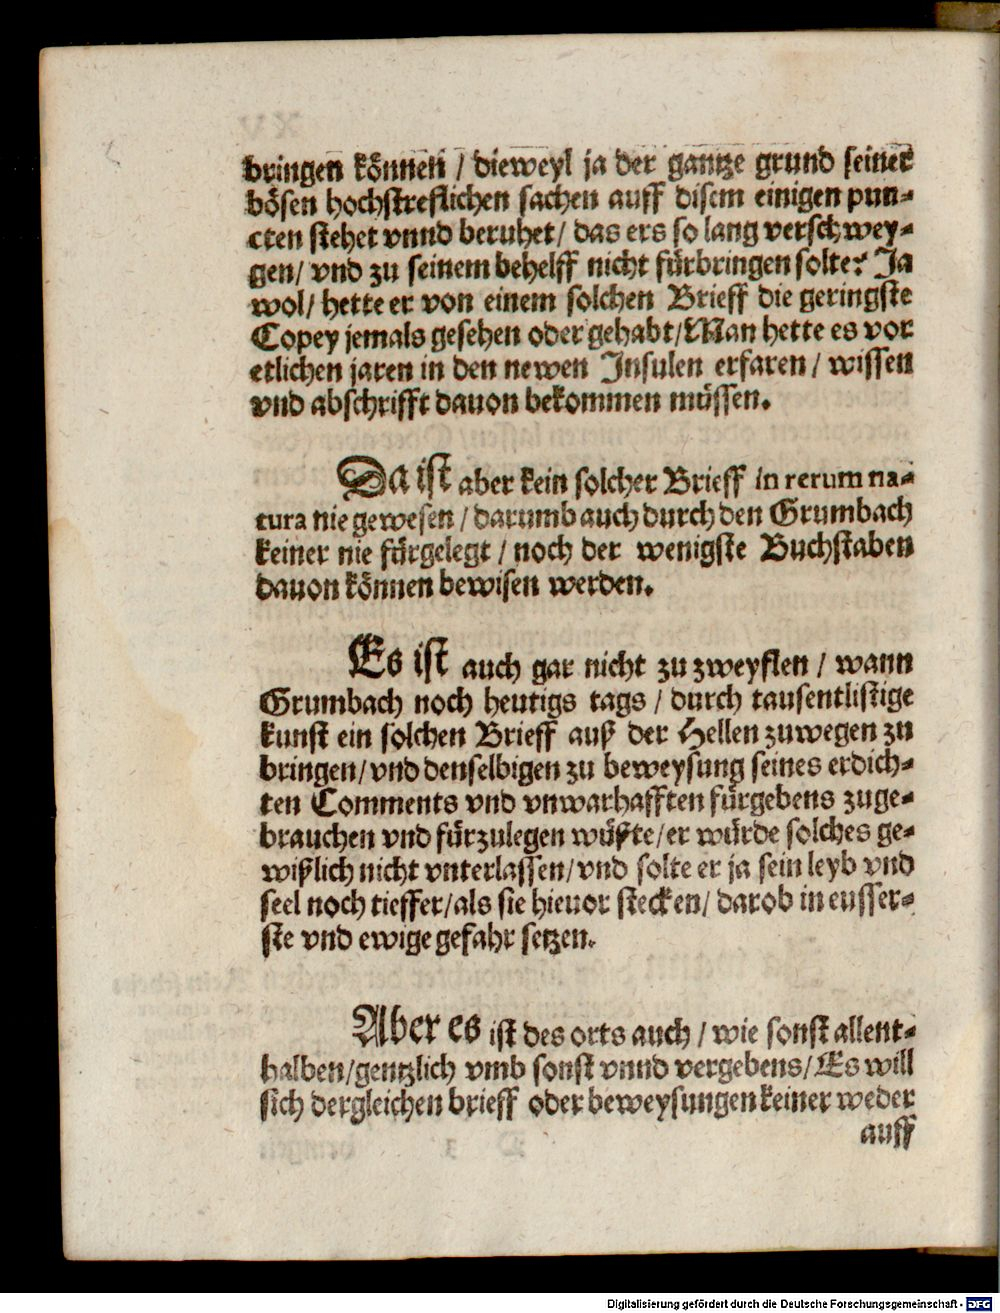 bringen können / dieweyl ja der gantze grund seiner
bösen hochstreflichen sachen auff disem einigen pun-
cten stehet vnnd beruhet / das ers so lang verschwey-
gen / vnd zu seinem behelff nicht fürbringen solte? Ja
wol / hette er von einem solchen Brieff die geringste
Copey jemals gesehen oder gehabt / Man hette es vor
etlichen jaren in den newen Insulen erfaren / wissen
vnd abschrifft dauon bekommen müssen.
Da ist aber kein solcher Brieff in rerum na-
tura nie gewesen / darumb auch durch den Grumbach
keiner nie fürgelegt / noch der wenigste Buchstaben
dauon können bewisen werden.
Es ist auch gar nicht zu zweyflen / wann
Grumbach noch heutigs tags / durch tausentlistige
kunst ein solchen Brieff auß der Hellen zuwegen zu
bringen / vnd denselbigen zu beweysung seines erdich-
ten Comments vnd vnwarhafften fürgebens zuge-
brauchen vnd fürzulegen wüßte / er würde solches ge-
wißlich nicht vnterlassen / vnd solte er ja sein leyb vnd
seel noch tieffer / als sie hieuor stecken / darob in eusser-
ste vnd ewige gefahr setzen.
Aber es ist des orts auch / wie sonst allent-
halben / gentzlich vmb sonst vnnd vergebens / Es will
sich dergleichen brieff oder beweysungen keiner weder
auff
Digitalisierung gefördert durch die Deutsche Forschungsgemeinschaft - DFG